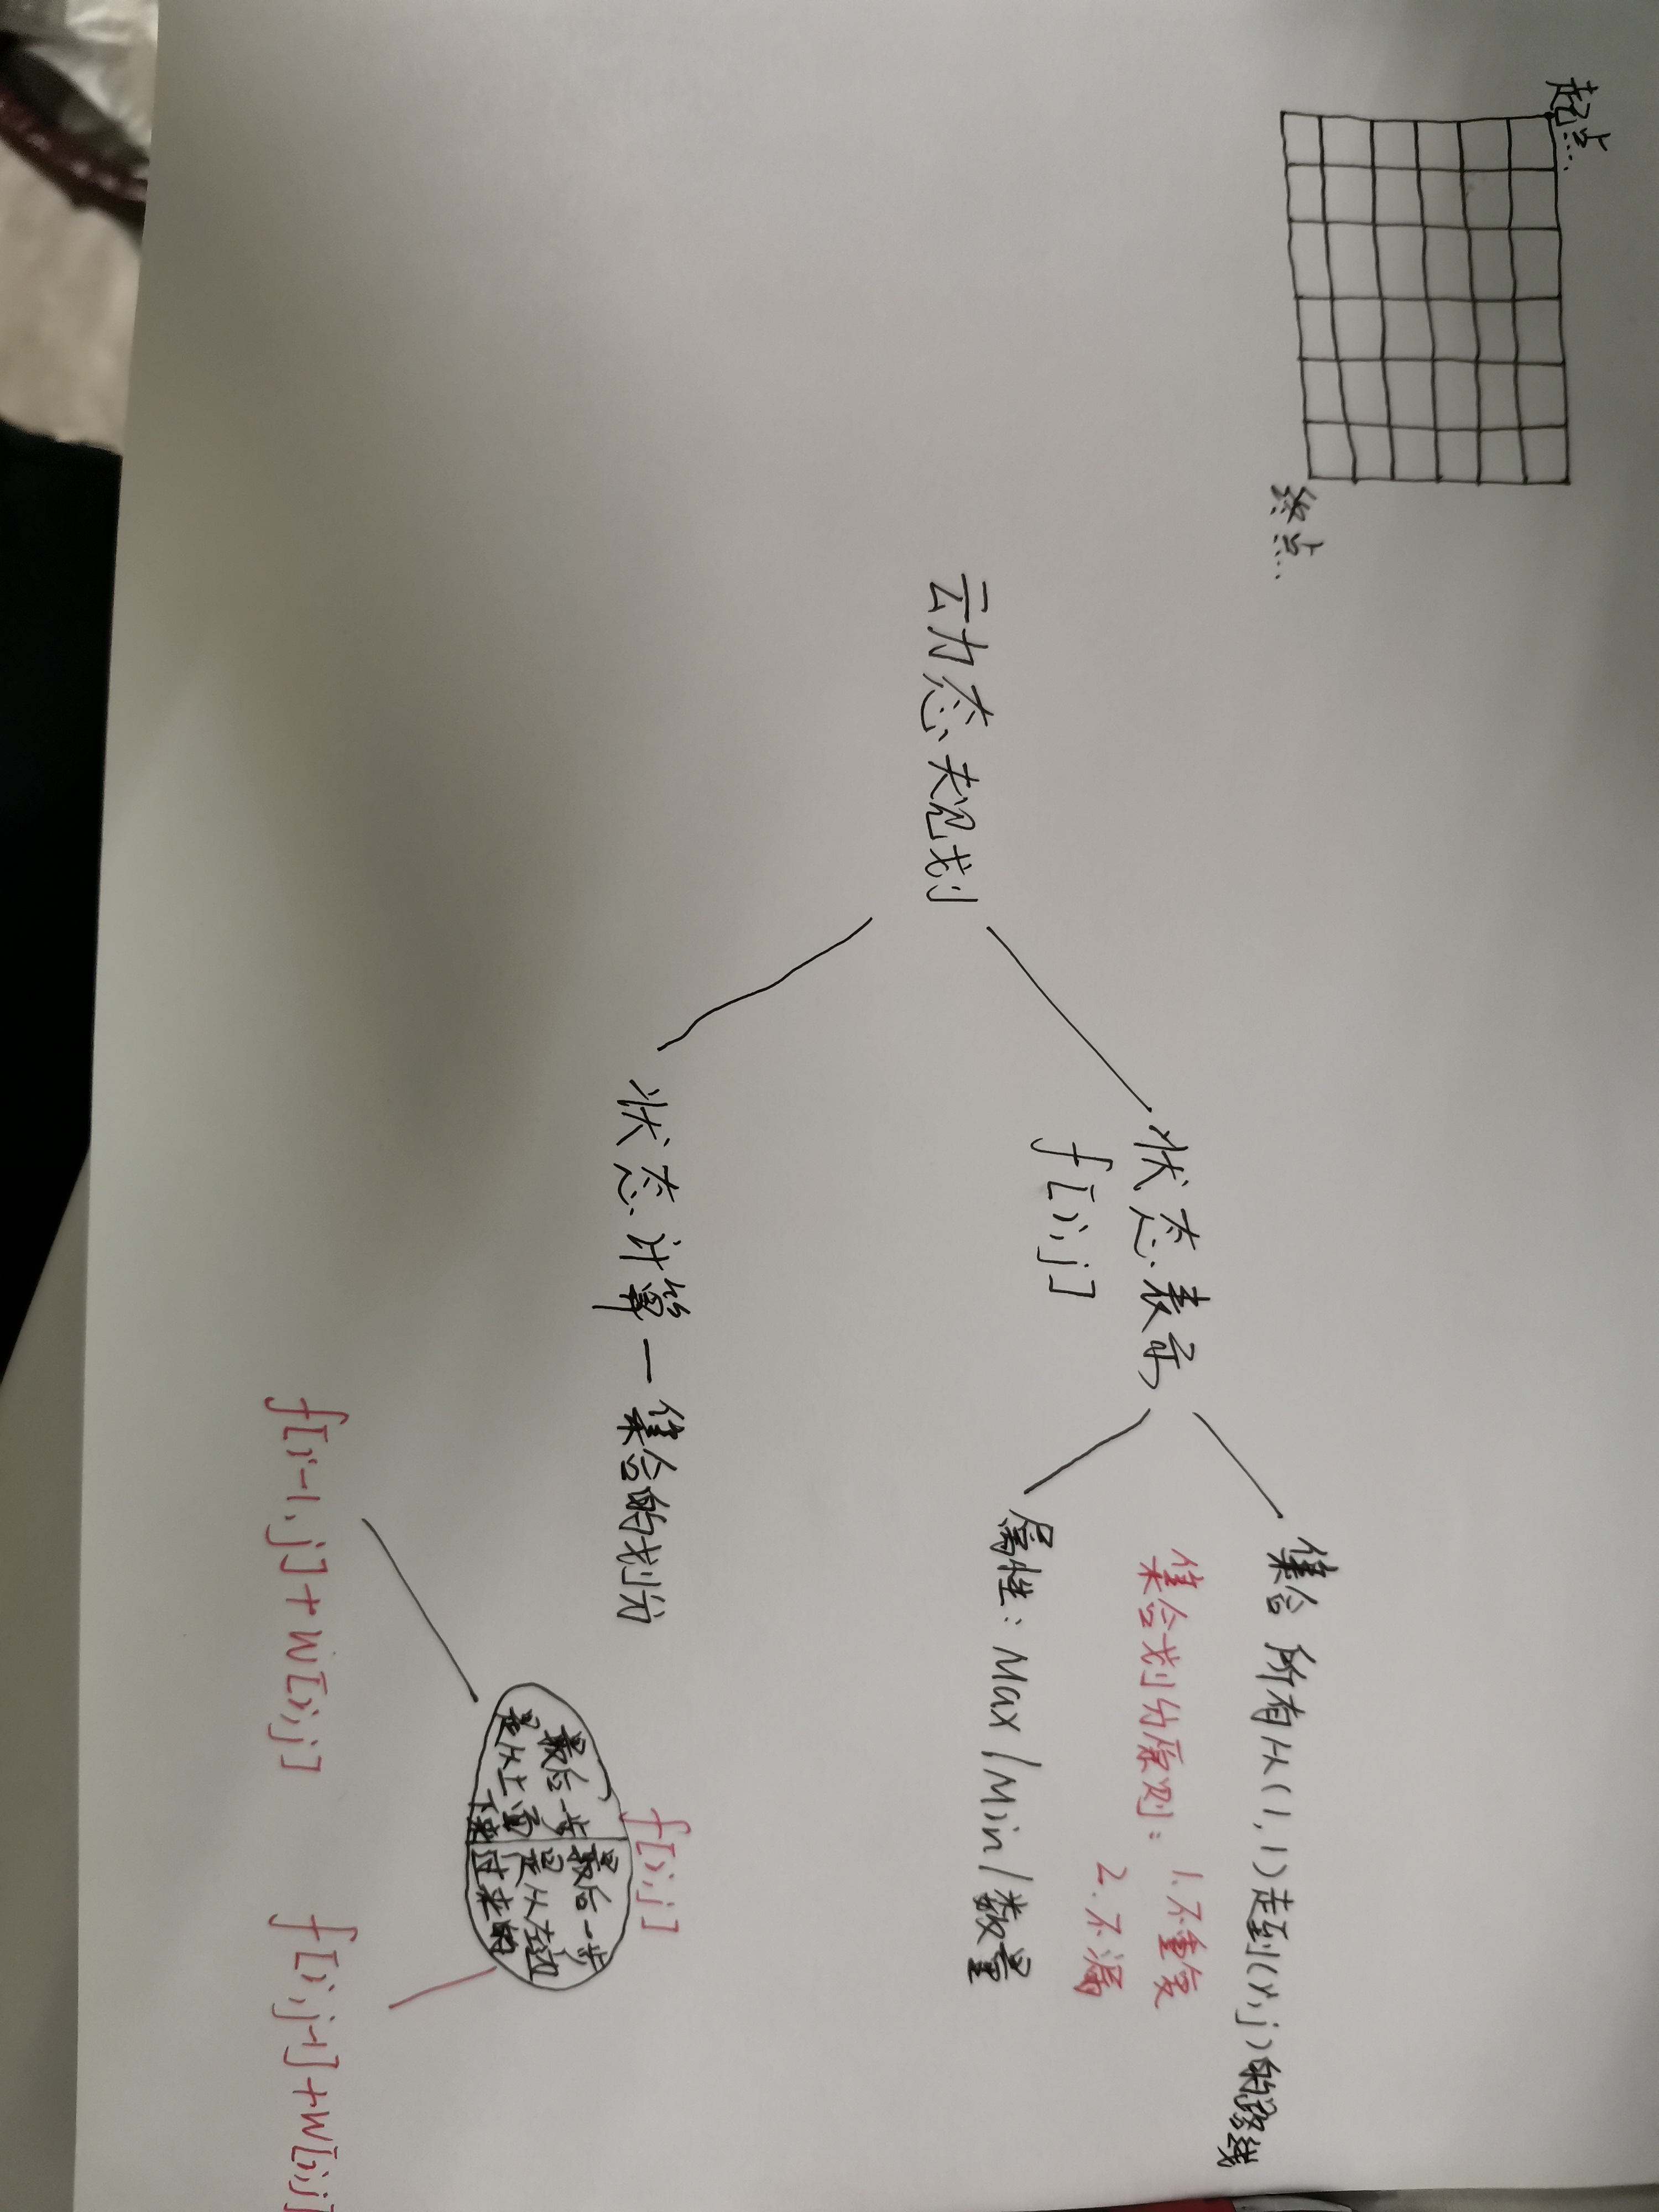 起点
终点
动态规划
状态表示
f[i,j]
集合 所有从(1,1)走到(i,j)的路线
集合划分原则：1.不重复
2.不漏
属性：Max/Min/数量
状态计算—集合的划分
f[i,j]
最后一步
是从上面
下来
最后一步
是从左边
过来的
f[i-1,j]+w[i,j]
f[i,j-1]+w[i,j]